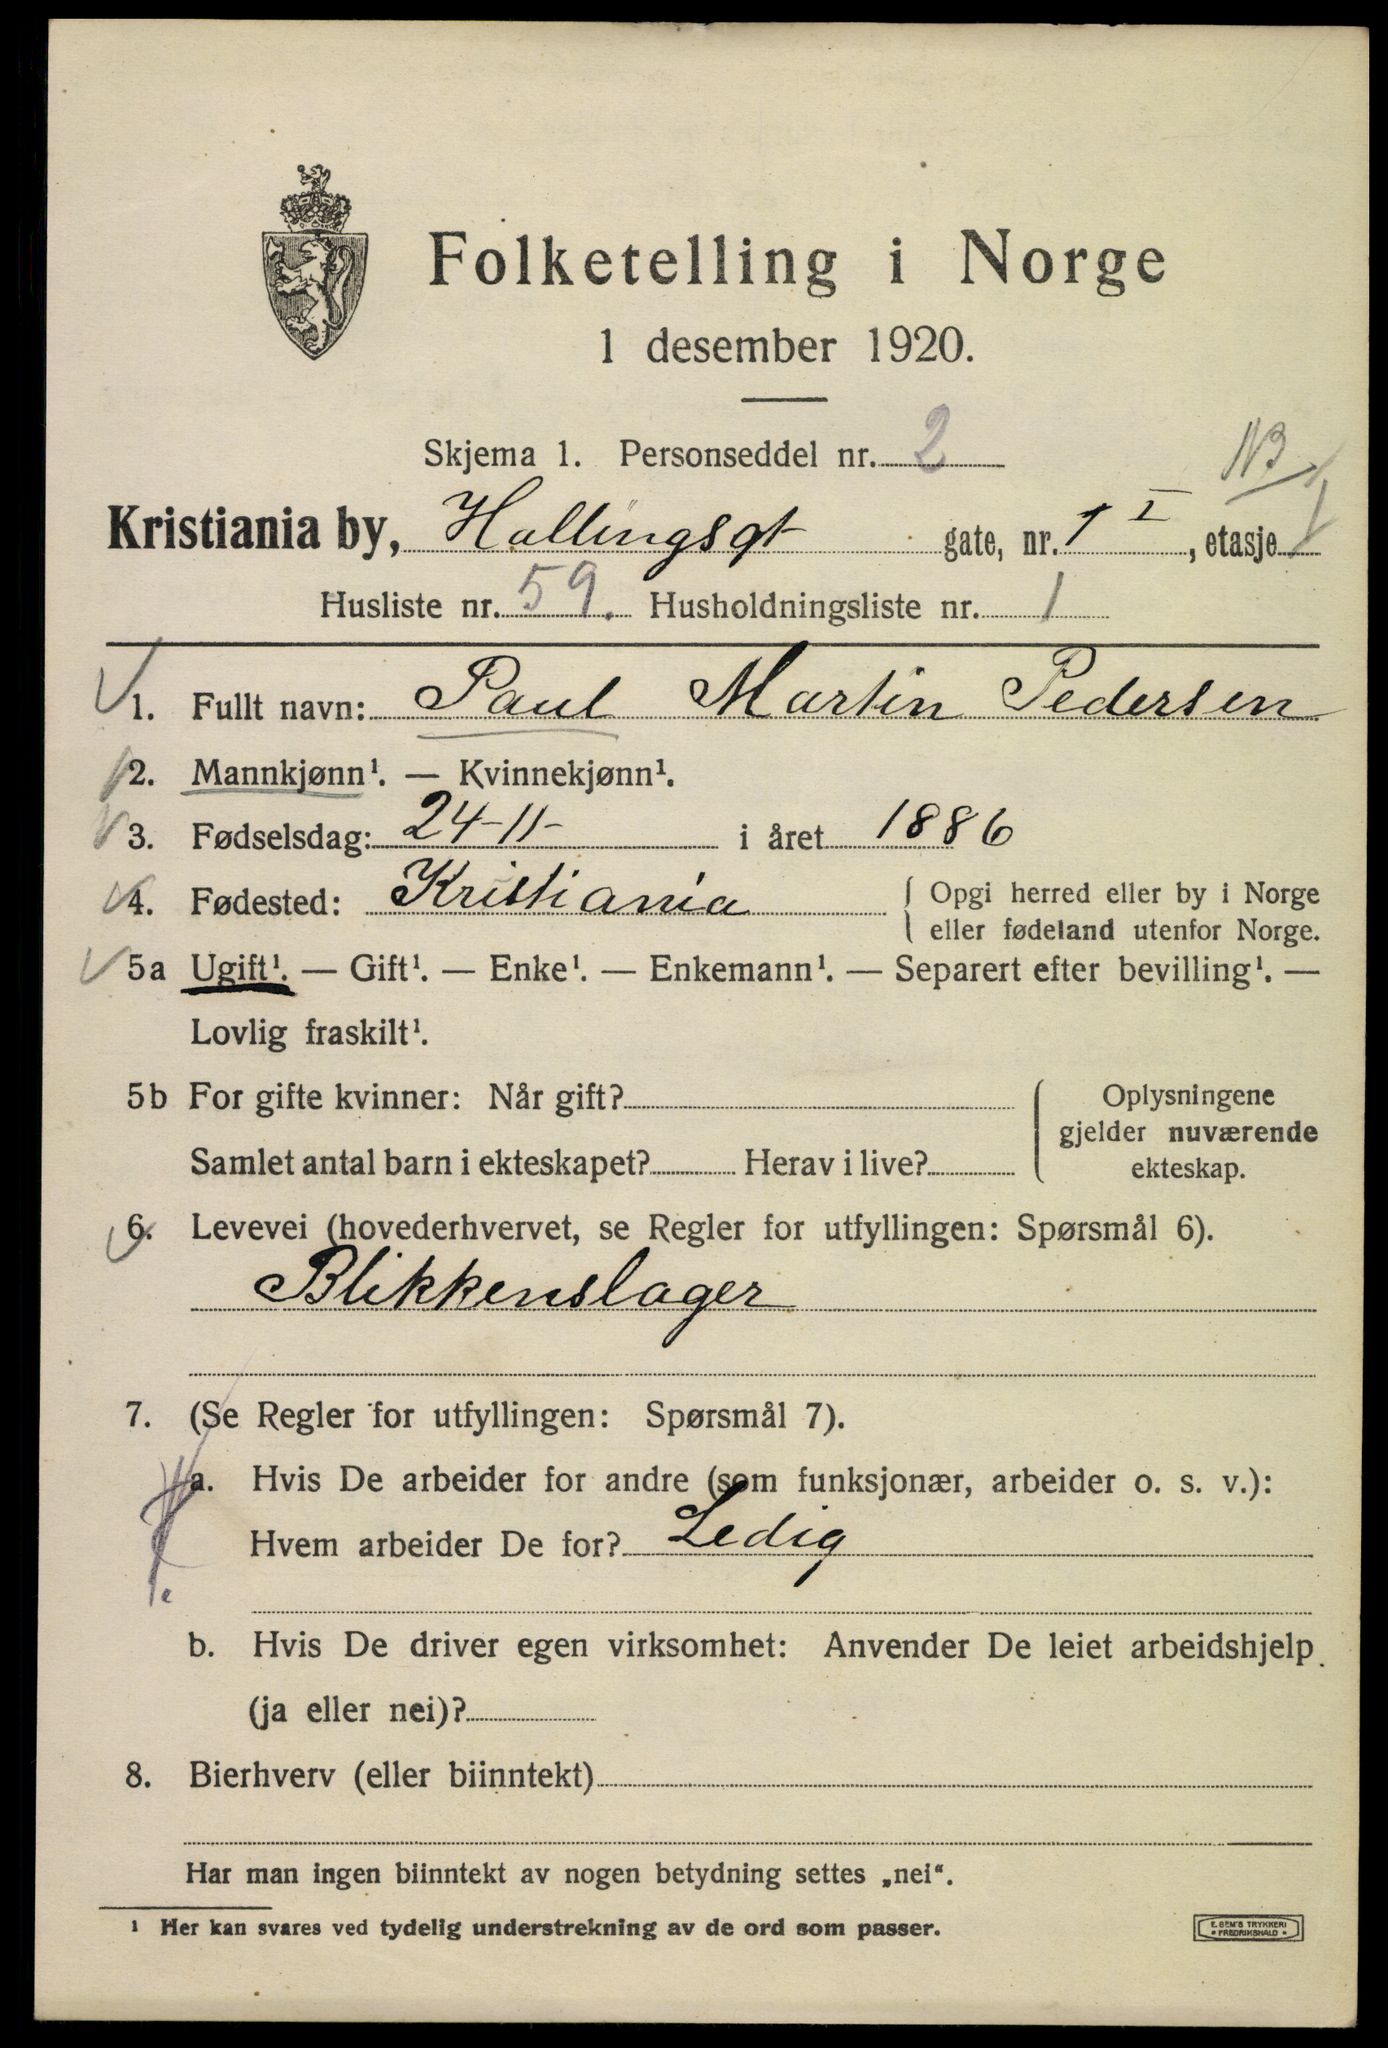 Folketelling i Norge
1 desember 1920.
Skjema 1. Personseddel nr. 2
NB
Kristiania by, Hallingsgt gate, nr. 1 I, etasje
Husliste nr. 59. Husholdningsliste nr. 1
1. Fullt navn: Paul Martin Pedersen
2. Mannkjønn¹. — Kvinnekjønn¹.
3. Fødselsdag: 24-11- i året 1886
4. Fødested: Kristiania { Opgi herred eller by i Norge
eller fødeland utenfor Norge.
5a Ugift¹. — Gift¹. — Enke¹. — Enkemann¹. — Separert efter bevilling¹. —
Lovlig fraskilt¹.
5b For gifte kvinner: Når gift? { Oplysningene
gjelder nuværende
Samlet antal barn i ekteskapet? Herav i live? ekteskap.
6. Levevei (hovederhvervet, se Regler for utfyllingen: Spørsmål 6).
Blikkenslager
7. (Se Regler for utfyllingen: Spørsmål 7).
a. Hvis De arbeider for andre (som funksjonær, arbeider o. s. v.):
Hvem arbeider De for? Ledig
b. Hvis De driver egen virksomhet: Anvender De leiet arbeidshjelp
(ja eller nei)?
8. Bierhverv (eller biinntekt)
Har man ingen biinntekt av nogen betydning settes „nei“.
¹ Her kan svares ved tydelig understrekning av de ord som passer.
E. SEM'S TRYKKERI
* FREDRIKSHALD *